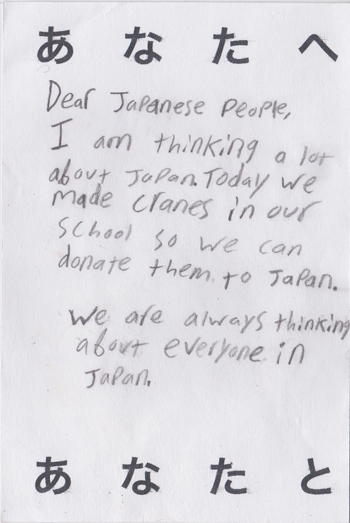 あなたへ
Dear Japanese people,
I am thinking a lot
about Japan. Today we
made cranes in our
school so we can
donate them to Japan.
We are always thinking
about everyone in
Japan.
あなたと